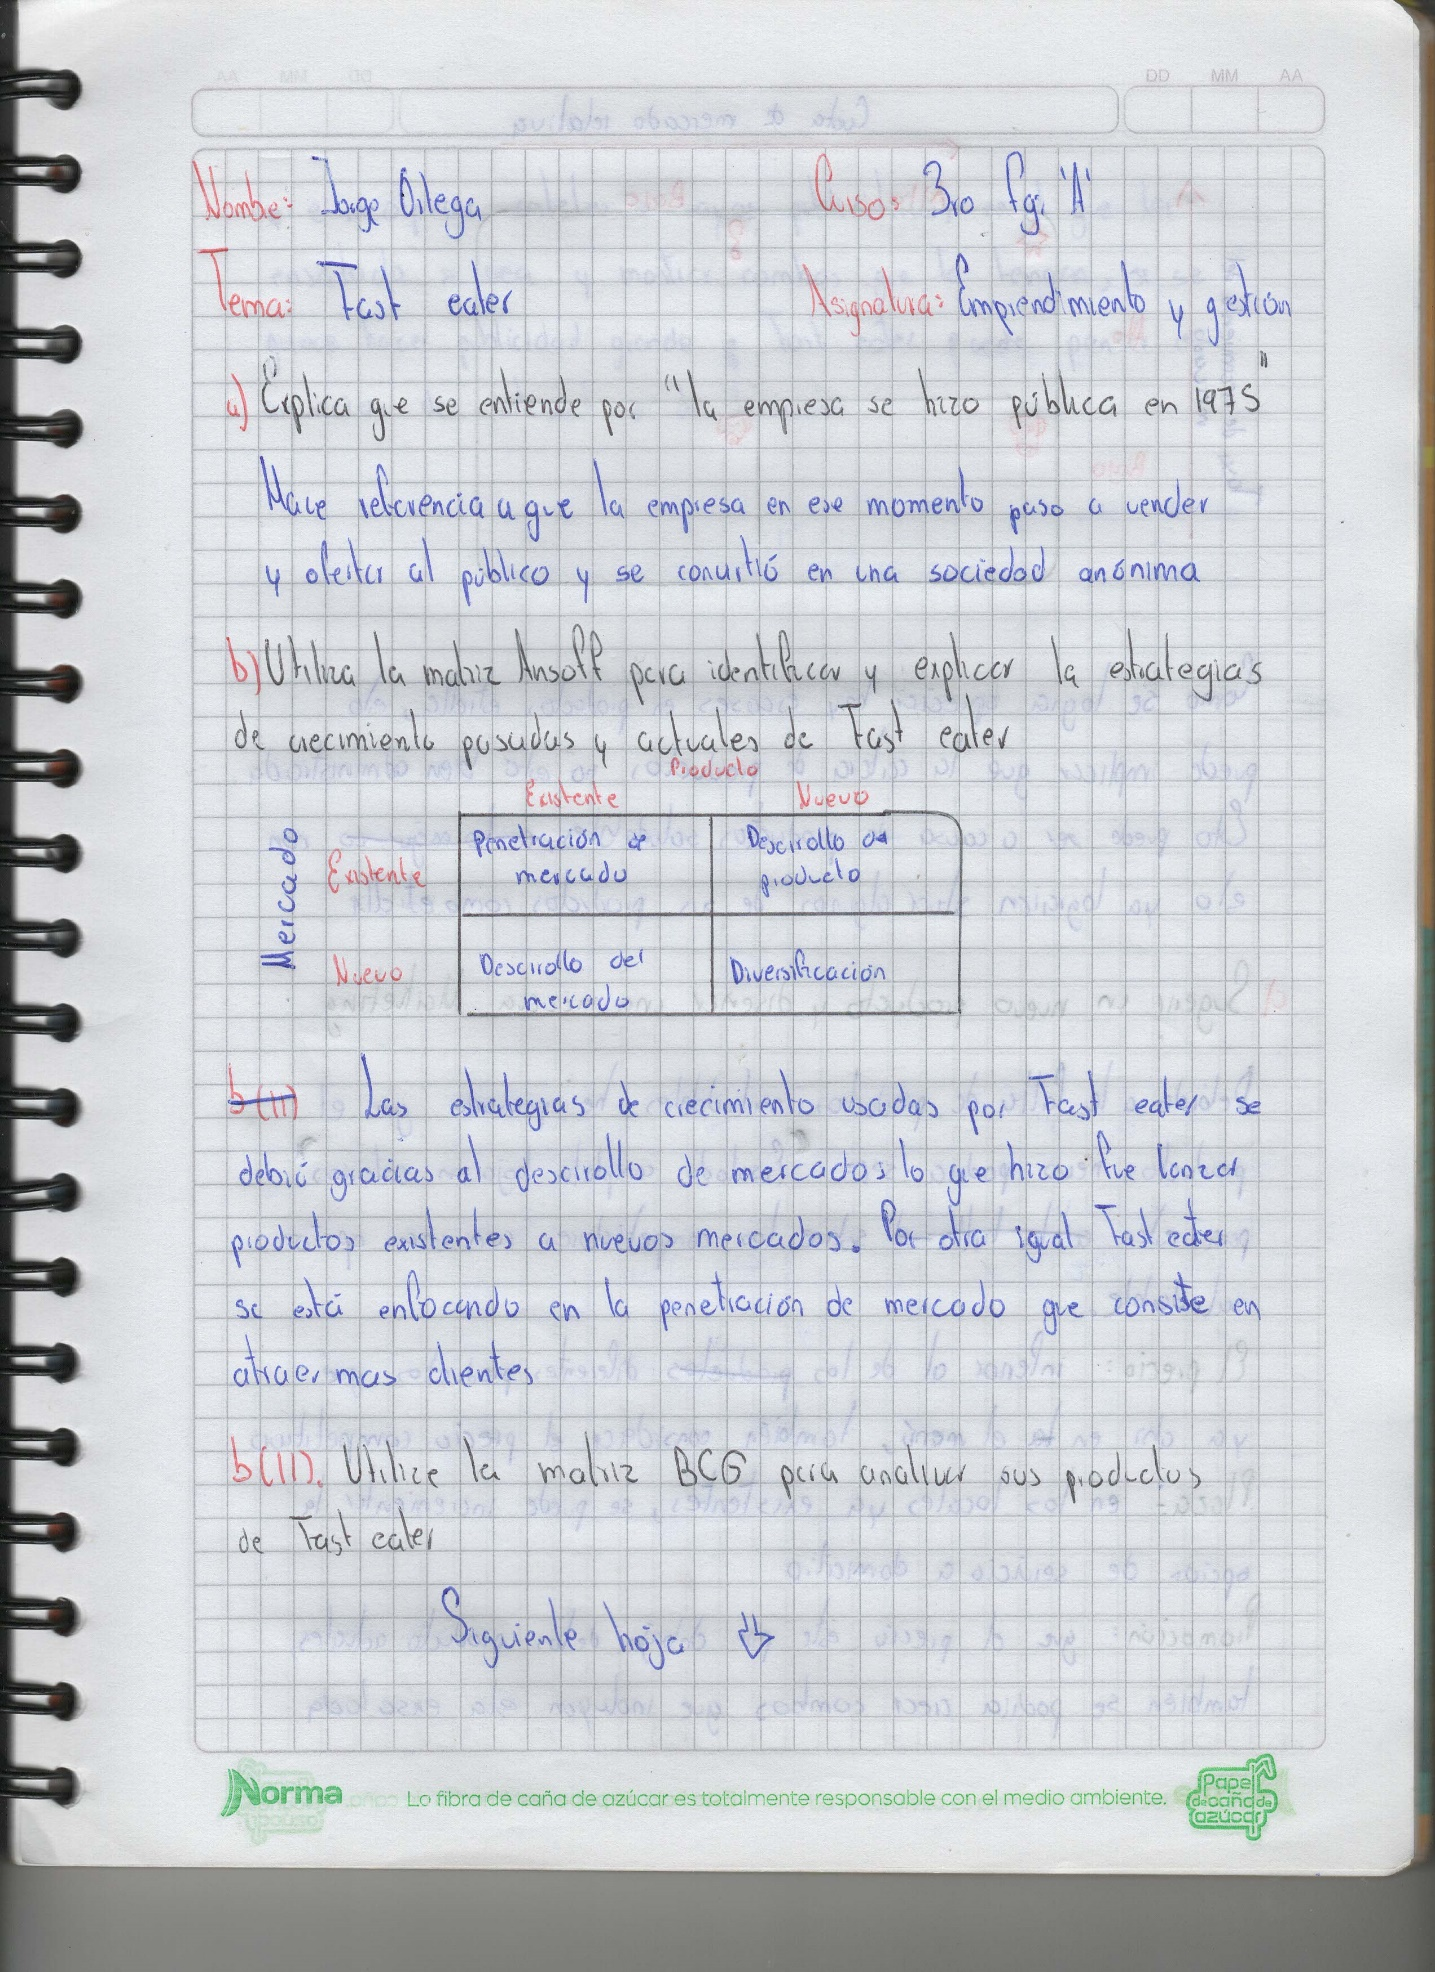 DD MM AA
Nombre: Jorge Ortega Curso: 3ro fgi "A"
Tema: Fast eater Asignatura: Emprendimiento y gestión
a) Explica que se entiende por "la empresa se hizo pública en 1975"
Hace referencia a que la empresa en ese momento paso a vender
y ofertar al público y se convirtió en una sociedad anónima
b) Utiliza la matriz Ansoff para identificar y explicar la estrategias
de crecimiento pasadas y actuales de Fast eater
Producto
Existente Nuevo
Mercado
Existente Penetración de mercado Desarrollo de producto
Nuevo Desarrollo del mercado Diversificación
b(II) Las estrategias de crecimiento usadas por Fast eater se
debió gracias al desarrollo de mercados lo que hizo fue lanzar
productos existentes a nuevos mercados. Por otra igual Fast eater
se está enfocando en la penetración de mercado que consiste en
atraer mas clientes
b(II). Utilize la matriz BCG para analizar sus productos
de Fast eater
Siguiente hoja
Norma Lo fibra de caña de azúcar es totalmente responsable con el medio ambiente. Papel de caña de azúcar